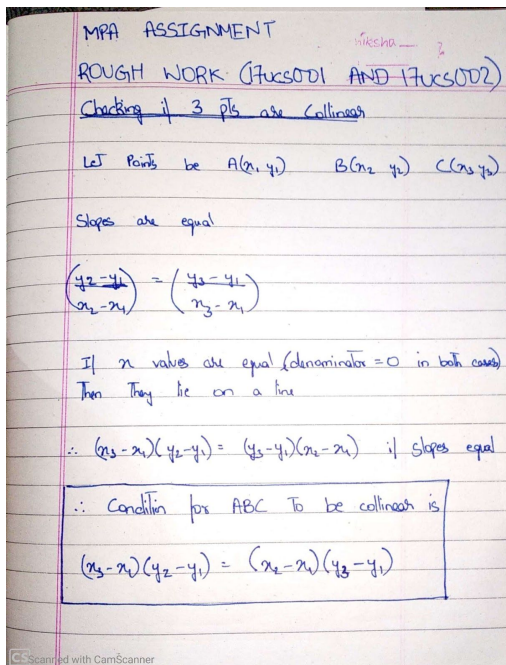 MPA ASSIGNMENT
niksha — ?
ROUGH WORK (17UCS001 AND 17UCS002)
Checking if 3 pTs are Collinear
LeT PoinTs be A(x, y₁) B(x₂ y₂) C(x₃ y₃)
Slopes are equal
(y₂-y₁ / x₂-x₁) = (y₃-y₁ / x₃-x₁)
If x values are equal (denominaTor = 0 in boTh cases)
Then They lie on a line
∴ (x₃-x₁)(y₂-y₁) = (y₃-y₁)(x₂-x₁) if slopes equal
∴ CondiTin for ABC To be collinear is
(x₃-x₁)(y₂-y₁) = (x₂-x₁)(y₃-y₁)
CS Scanned with CamScanner